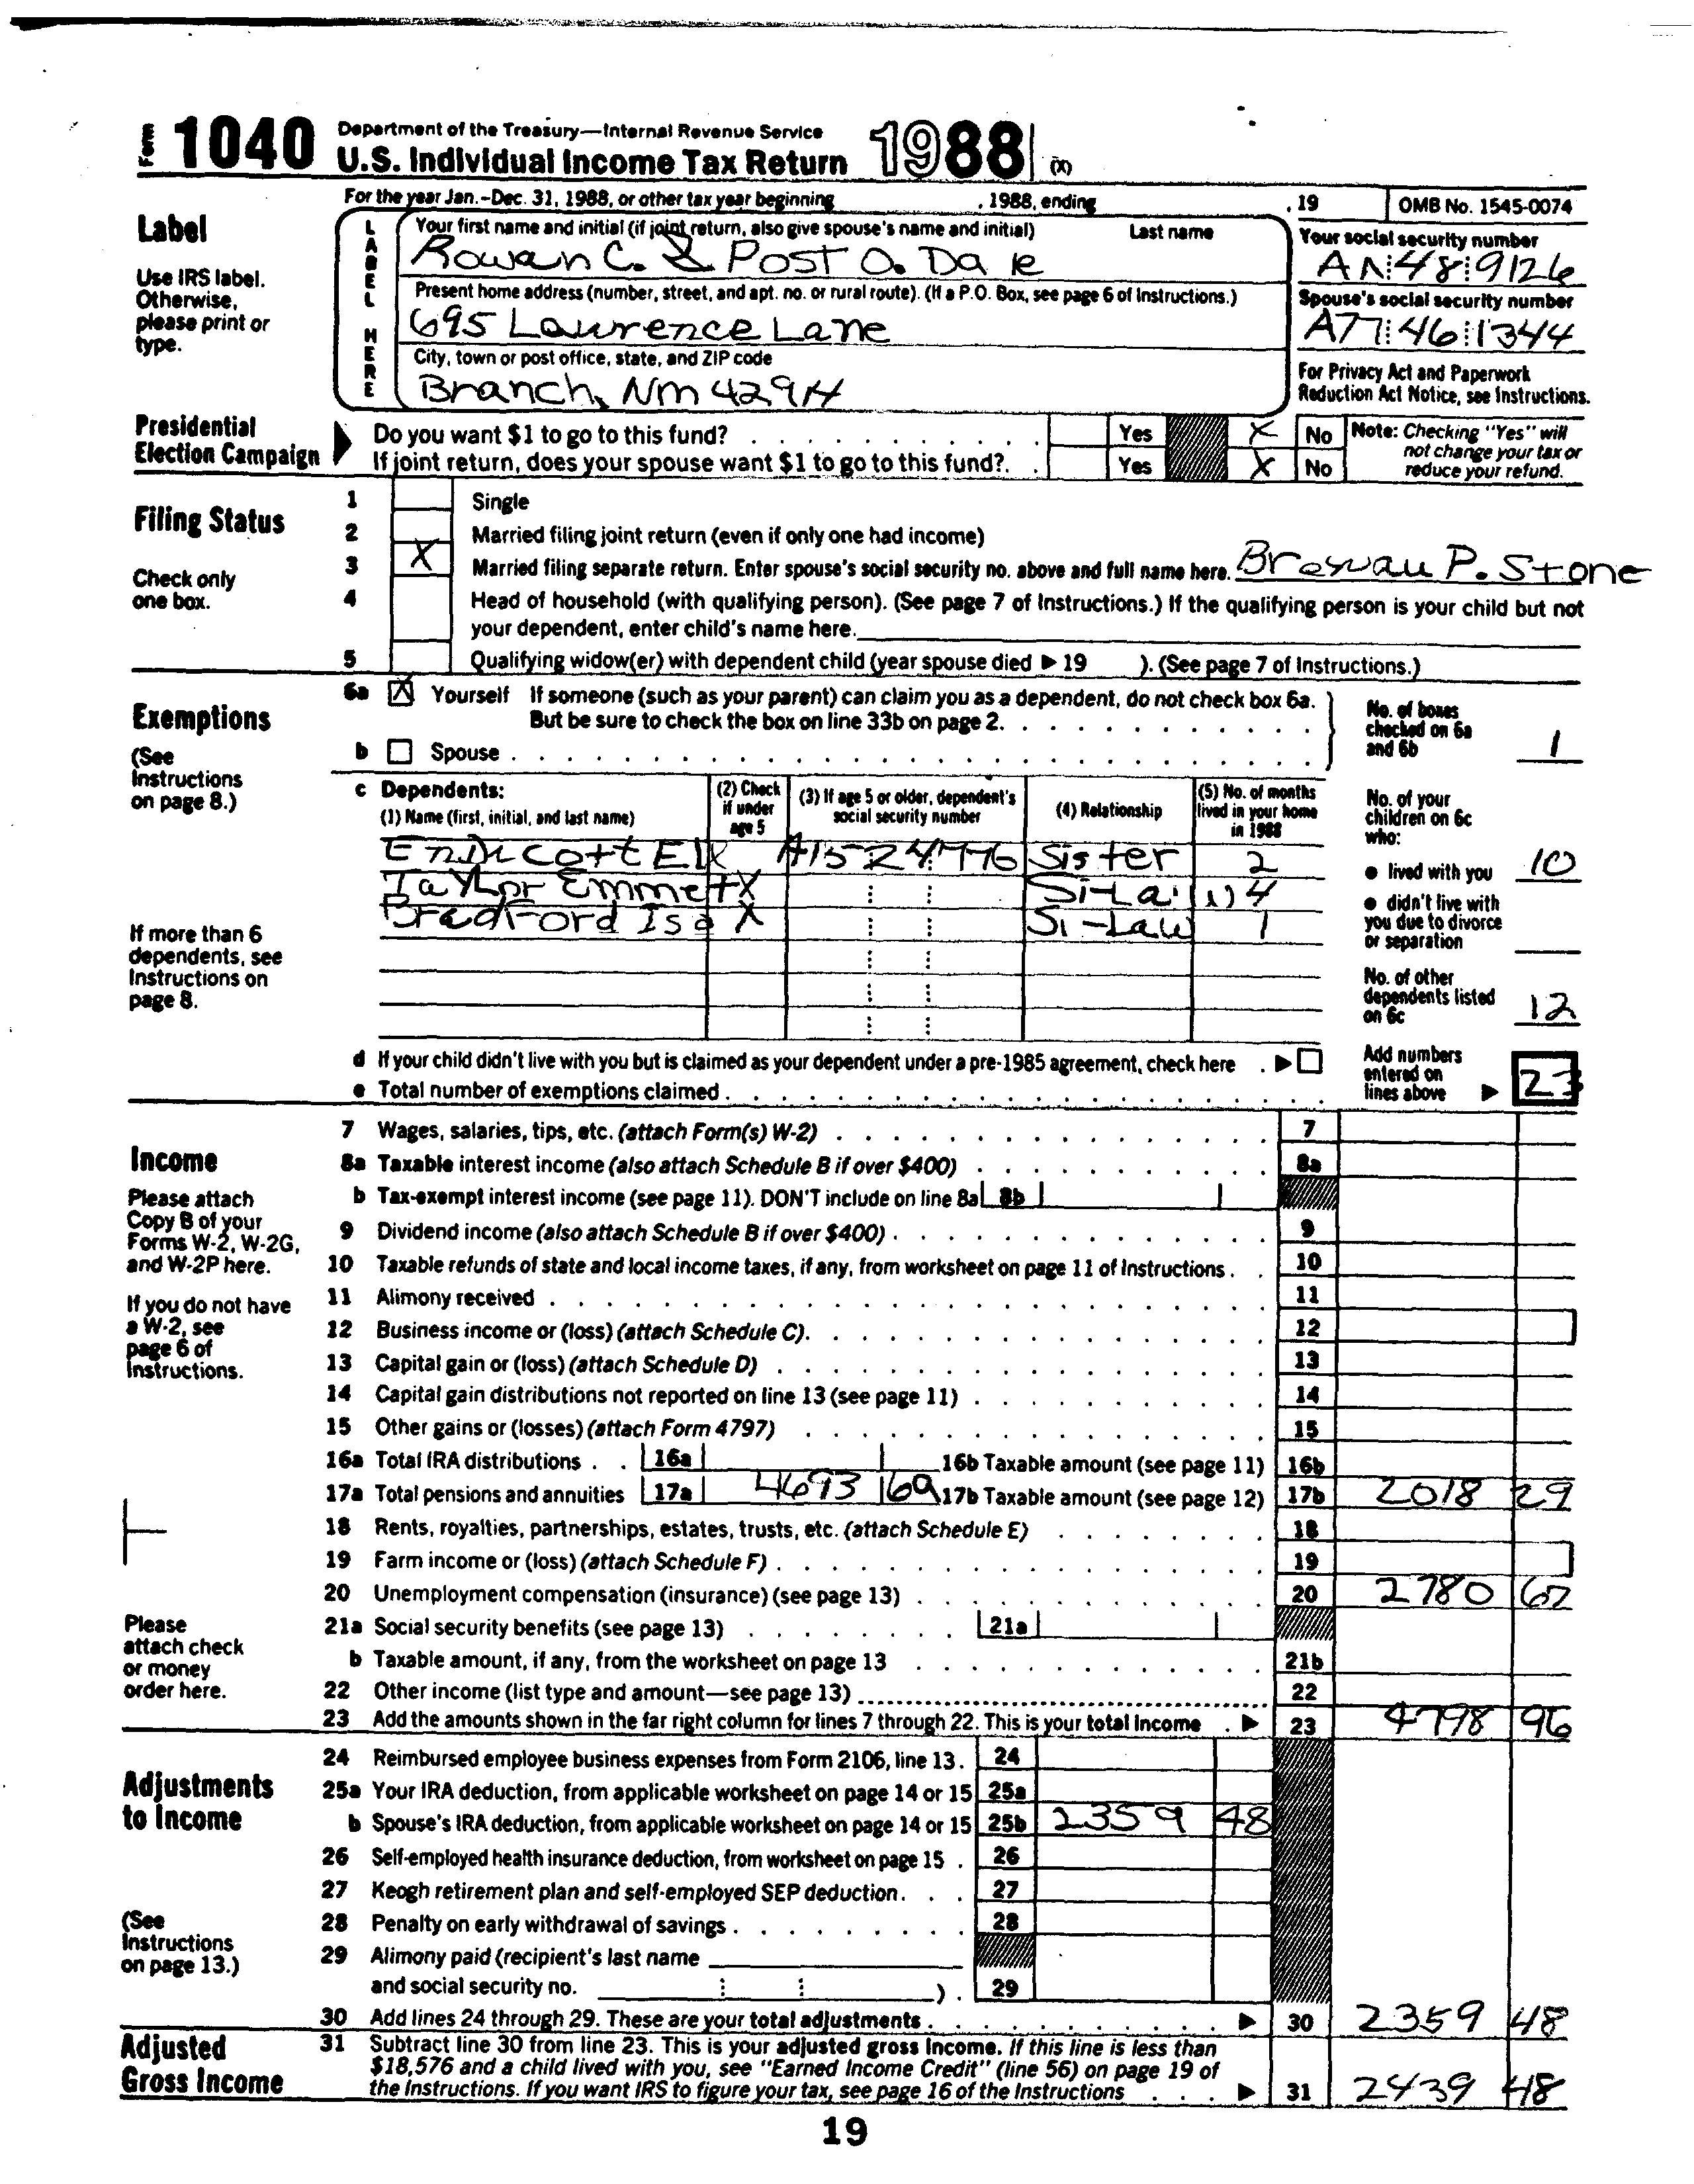 Form 1040 Department of the Treasury—Internal Revenue Service
U.S. Individual Income Tax Return 1988 (X)
For the year Jan.–Dec. 31, 1988, or other tax year beginning , 1988, ending , 19 OMB No. 1545-0074
Label
Use IRS label. Otherwise, please print or type.
LABEL HERE
Your first name and initial (if joint return, also give spouse's name and initial) Last name
Rowan C. & Post O. Dale
Your social security number
AN 48 9126
Present home address (number, street, and apt. no. or rural route). (If a P.O. Box, see page 6 of Instructions.)
695 Lawrence Lane
Spouse's social security number
A77 46 1344
City, town or post office, state, and ZIP code
Branch, NM 4291H
For Privacy Act and Paperwork Reduction Act Notice, see Instructions.
Presidential Election Campaign
Do you want $1 to go to this fund? Yes X No
If joint return, does your spouse want $1 to go to this fund? Yes X No
Note: Checking "Yes" will not change your tax or reduce your refund.
Filing Status
Check only one box.
1 Single
2 Married filing joint return (even if only one had income)
3 X Married filing separate return. Enter spouse's social security no. above and full name here. P. Stone
4 Head of household (with qualifying person). (See page 7 of Instructions.) If the qualifying person is your child but not
your dependent, enter child's name here.
5 Qualifying widow(er) with dependent child (year spouse died ▶ 19 ). (See page 7 of Instructions.)
Exemptions
(See Instructions on page 8.)
6a X Yourself If someone (such as your parent) can claim you as a dependent, do not check box 6a.
But be sure to check the box on line 33b on page 2.
b Spouse
No. of boxes checked on 6a and 6b 1
c Dependents:
(1) Name (first, initial, and last name)
(2) Check if under age 5
(3) If age 5 or older, dependent's social security number
(4) Relationship
(5) No. of months lived in your home in 1988
Endicott Elk Sister 2
Taylor Emmet X 4
Bradford Isa X Si-Law 1
No. of your children on 6c who:
• lived with you 10
• didn't live with you due to divorce or separation
No. of other dependents listed on 6c 12
If more than 6 dependents, see Instructions on page 8.
d If your child didn't live with you but is claimed as your dependent under a pre-1985 agreement, check here ▶
e Total number of exemptions claimed
Add numbers entered on lines above ▶ 23
Income
Please attach Copy B of your Forms W-2, W-2G, and W-2P here.
If you do not have a W-2, see page 6 of Instructions.
7 Wages, salaries, tips, etc. (attach Form(s) W-2) 7
8a Taxable interest income (also attach Schedule B if over $400) 8a
b Tax-exempt interest income (see page 11). DON'T include on line 8a 8b
9 Dividend income (also attach Schedule B if over $400) 9
10 Taxable refunds of state and local income taxes, if any, from worksheet on page 11 of Instructions 10
11 Alimony received 11
12 Business income or (loss) (attach Schedule C) 12
13 Capital gain or (loss) (attach Schedule D) 13
14 Capital gain distributions not reported on line 13 (see page 11) 14
15 Other gains or (losses) (attach Form 4797) 15
16a Total IRA distributions 16a 16b Taxable amount (see page 11) 16b
17a Total pensions and annuities 17a 4693 69 17b Taxable amount (see page 12) 17b 2018 29
18 Rents, royalties, partnerships, estates, trusts, etc. (attach Schedule E) 18
19 Farm income or (loss) (attach Schedule F) 19
20 Unemployment compensation (insurance) (see page 13) 20 2780 67
21a Social security benefits (see page 13) 21a
b Taxable amount, if any, from the worksheet on page 13 21b
22 Other income (list type and amount—see page 13) 22
23 Add the amounts shown in the far right column for lines 7 through 22. This is your total income ▶ 23 4798 96
Please attach check or money order here.
Adjustments to Income
(See Instructions on page 13.)
24 Reimbursed employee business expenses from Form 2106, line 13 24
25a Your IRA deduction, from applicable worksheet on page 14 or 15 25a
b Spouse's IRA deduction, from applicable worksheet on page 14 or 15 25b 2359 48
26 Self-employed health insurance deduction, from worksheet on page 15 26
27 Keogh retirement plan and self-employed SEP deduction 27
28 Penalty on early withdrawal of savings 28
29 Alimony paid (recipient's last name
and social security no. ) 29
30 Add lines 24 through 29. These are your total adjustments ▶ 30 2359 48
Adjusted Gross Income
31 Subtract line 30 from line 23. This is your adjusted gross income. If this line is less than
$18,576 and a child lived with you, see "Earned Income Credit" (line 56) on page 19 of
the Instructions. If you want IRS to figure your tax, see page 16 of the Instructions ▶ 31 2439 48
19